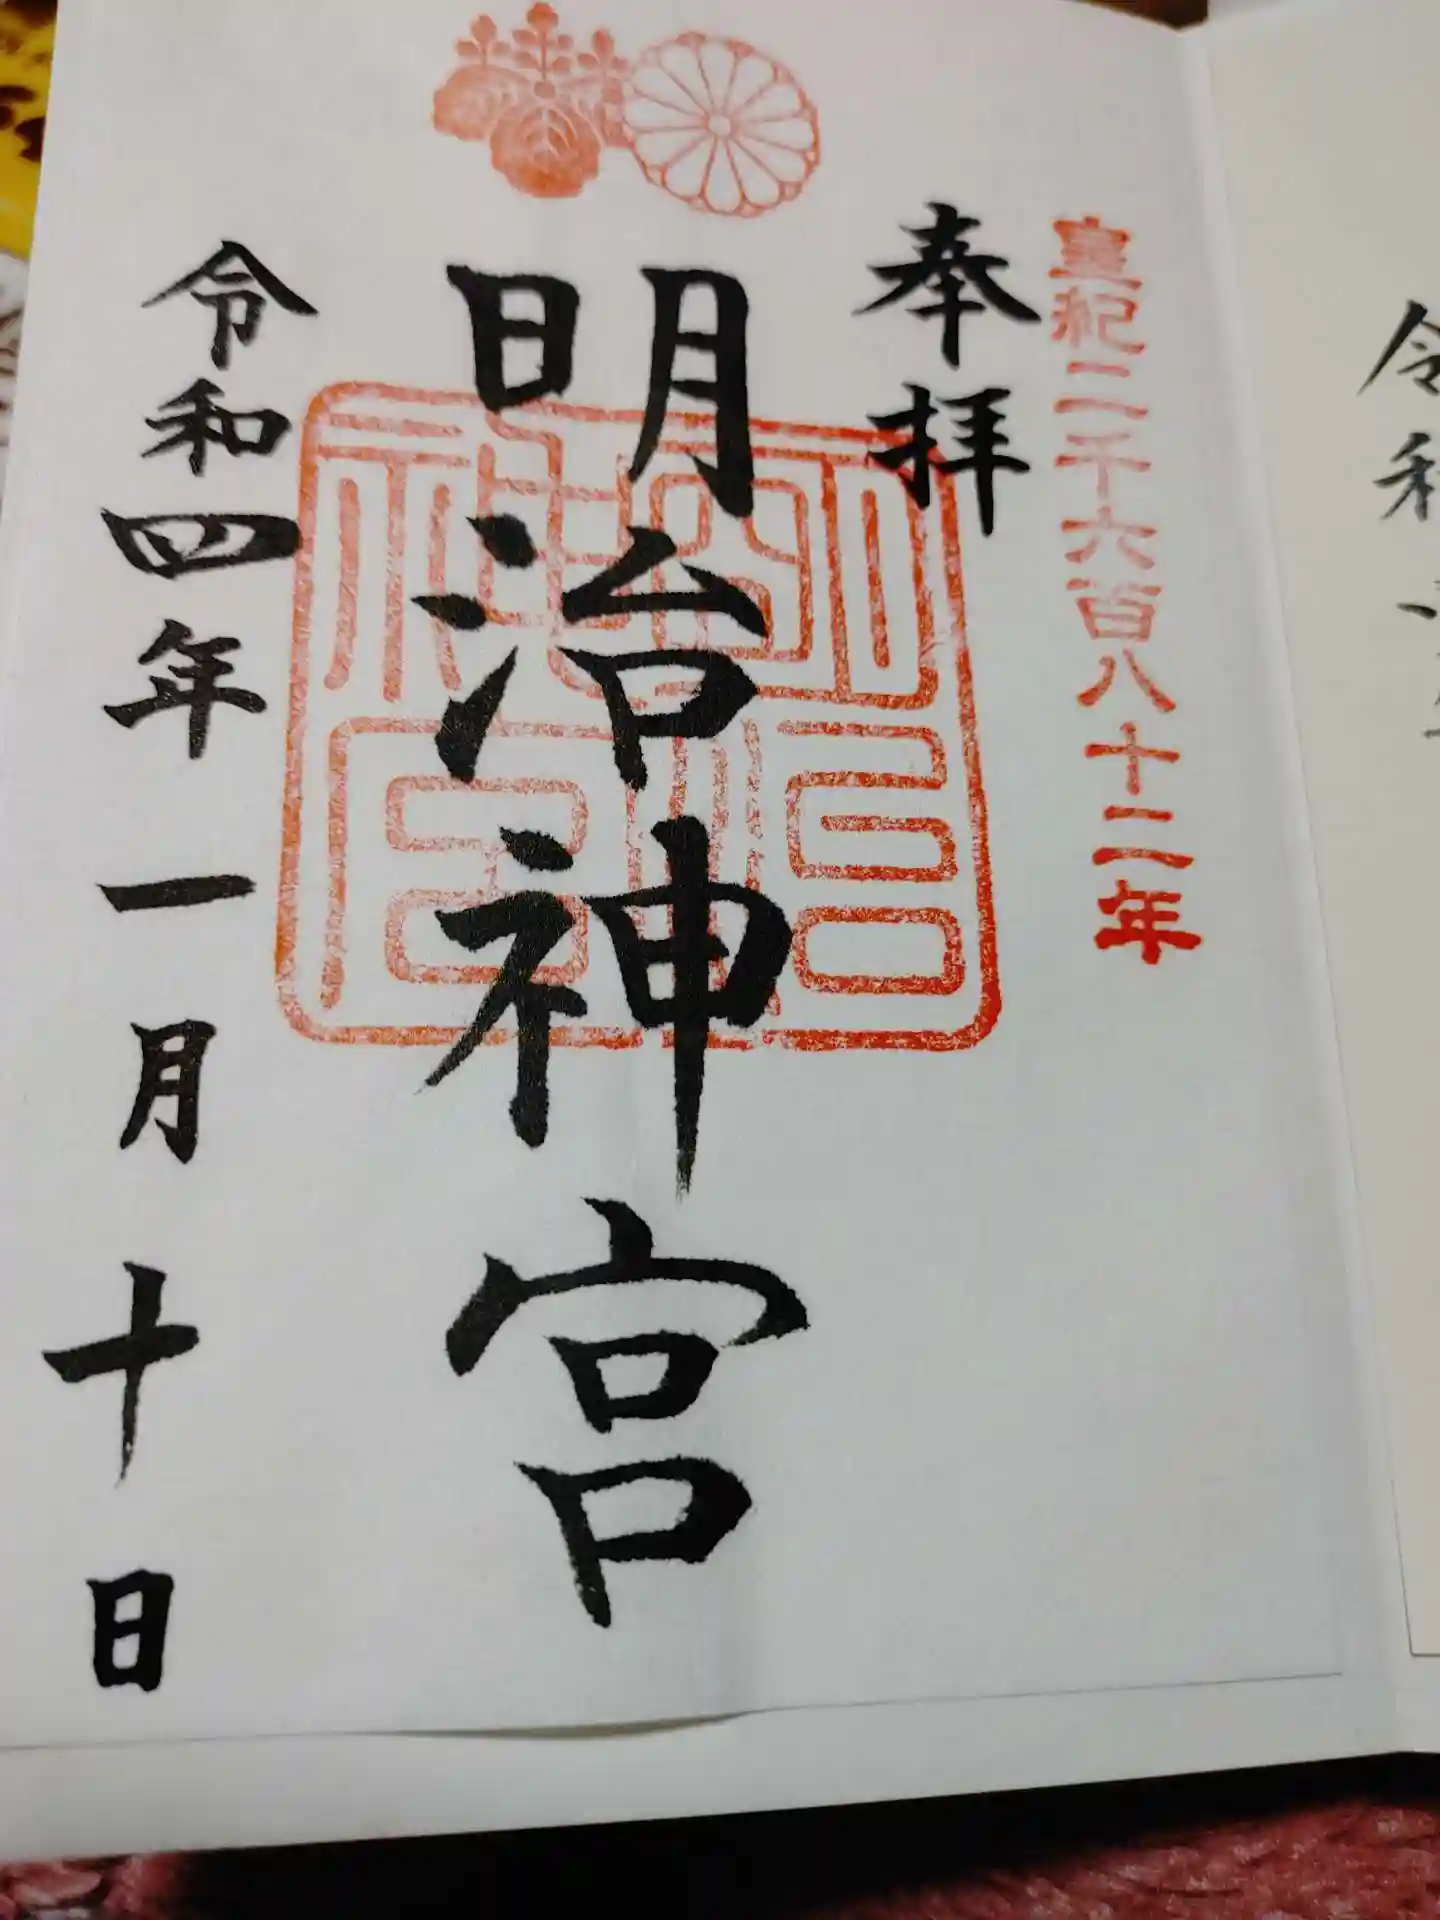 皇紀二千六百八十二年
奉拝
明治神宮
令和四年一月十日
令和